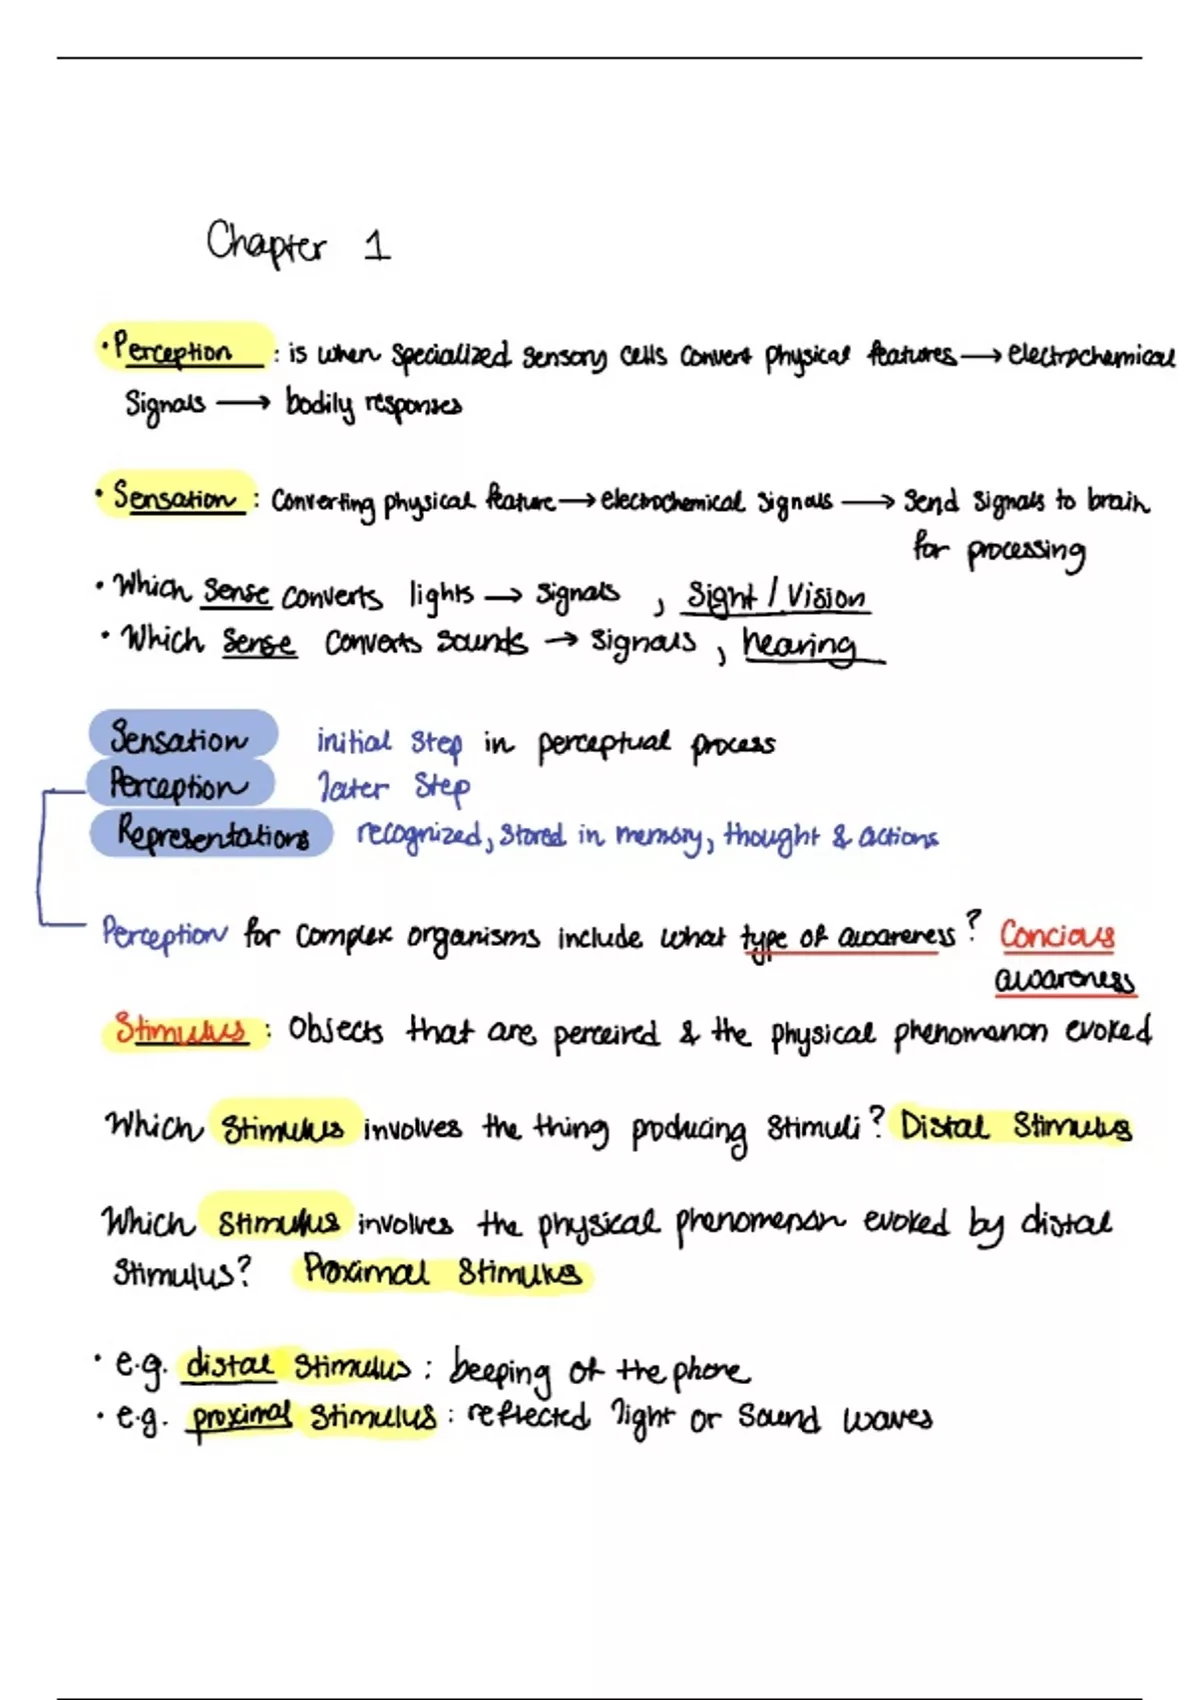 Chapter 1
• Perception : is when specialized sensory cells convert physical features → electrochemical
signals → bodily responses
• Sensation : Converting physical feature → electrochemical signals → send signals to brain
for processing
• Which sense converts lights → signals , sight / vision
• Which sense converts sounds → signals , hearing
Sensation initial step in perceptual process
Perception later step
Representations recognized, stored in memory, thought & actions
Perception for complex organisms include what type of awareness? Concious
awareness
Stimulus : Objects that are perceived & the physical phenomenon evoked
Which stimulus involves the thing producing stimuli? Distal stimulus
Which stimulus involves the physical phenomenon evoked by distal
stimulus? Proximal stimulus
• e.g. distal stimulus : beeping of the phone
• e.g. proximal stimulus : reflected light or sound waves